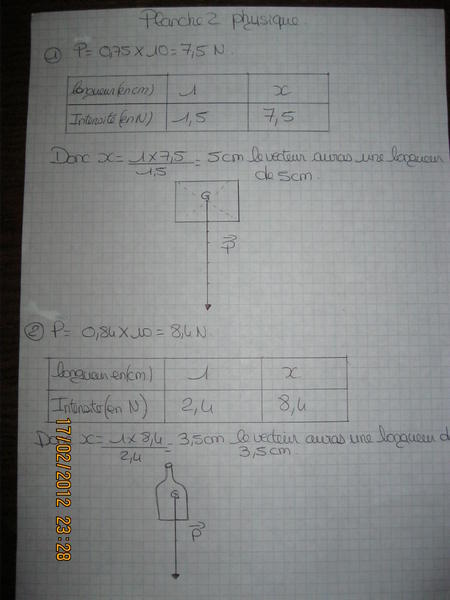 Planche 2 physique.
① P = 0,75 x 10 = 7,5 N.
longueur(en cm) 1 x
Intensité(en N) 1,5 7,5
Donc x = 1 x 7,5 / 1,5 = 5 cm le vecteur auras une longueur
de 5 cm.
G
P
② P = 0,84 x 10 = 8,4 N.
longueur en(cm) 1 x
Intensité(en N) 2,4 8,4
Donc x = 1 x 8,4 / 2,4 = 3,5 cm le vecteur auras une longueur d
3,5 cm.
G
P
17/02/2012 23:28